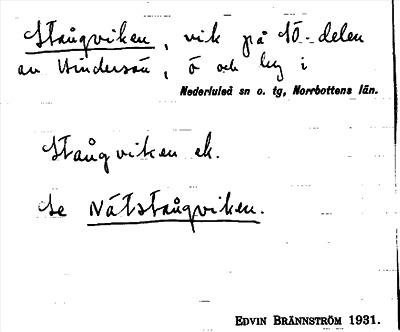 Stångviken, vik på NÖ-delen
av Hindersön, ö och by i
Nederluleå sn o. tg, Norrbottens län.
Stångviken ek.
Se Nätstångviken.
EDVIN BRÄNNSTRÖM 1931.